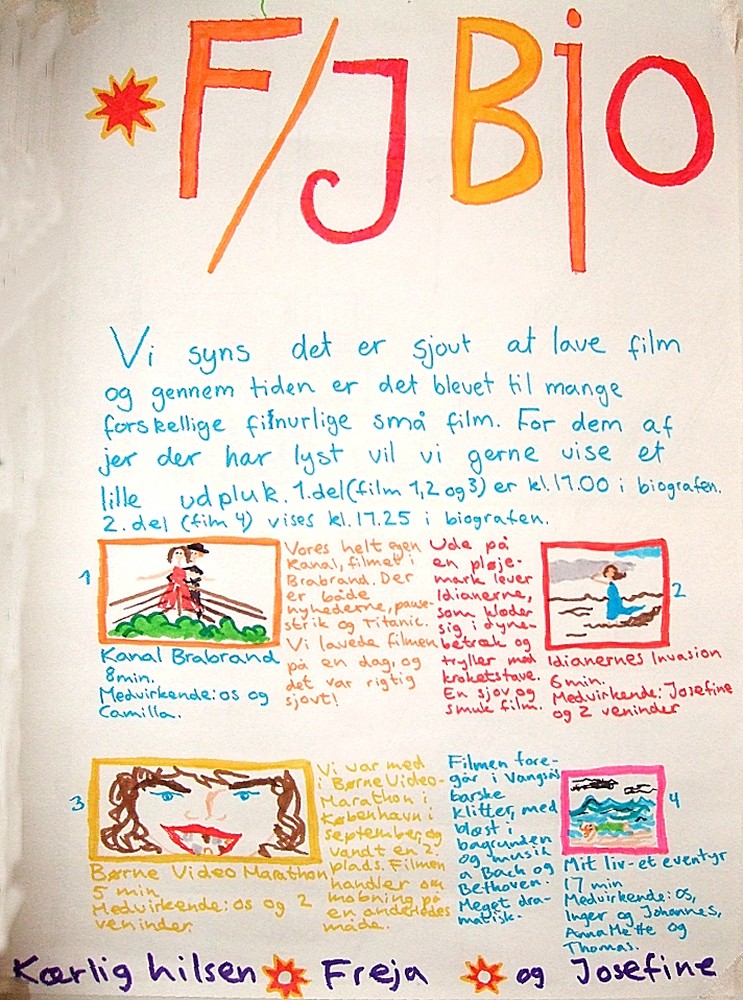 F/J BiO
Vi syns det er sjovt at lave film
og gennem tiden er det blevet til mange
forskellige finurlige små film. For dem af
jer der har lyst vil vi gerne vise et
lille udpluk. 1.del (film 1,2 og 3) er kl.17.00 i biografen.
2.del (film 4) vises kl.17.25 i biografen.
1
Kanal Brabrand
8min.
Medvirkende: os og
Camilla.
Vores helt egen
Kanal, filmet i
Brabrand. Der
er både
nyhederne, pause-
strik og Titanic.
Vi lavede filmen
på en dag, og
det var rigtig
sjovt!
Ude på
en pløje-
mark lever
Idianerne,
som klæder
sig i dyne-
betræk og
tryller med
kroketstave.
En sjov og
smuk film.
2
Idianernes Invasion
6min.
Medvirkende: Josefine
og 2 veninder
3
Børne Video Marathon
5 min
Medvirkende: os og 2
veninder.
Vi var med
i BørneVideo-
Marathon i
København i
september, og
vandt en 2.
plads. Filmen
handler om
mobning på
en anderledes
måde.
Filmen fore-
går i Vangså's
barske
klitter, med
blæst i
bagrunden
og musik
a Bach og
Bethoven.
Meget dra-
matisk.
4
Mit liv-et eventyr
17 min
Medvirkende: os,
Inger og Johannes,
AnnaMette og
Thomas.
Kærlig hilsen Freja og Josefine